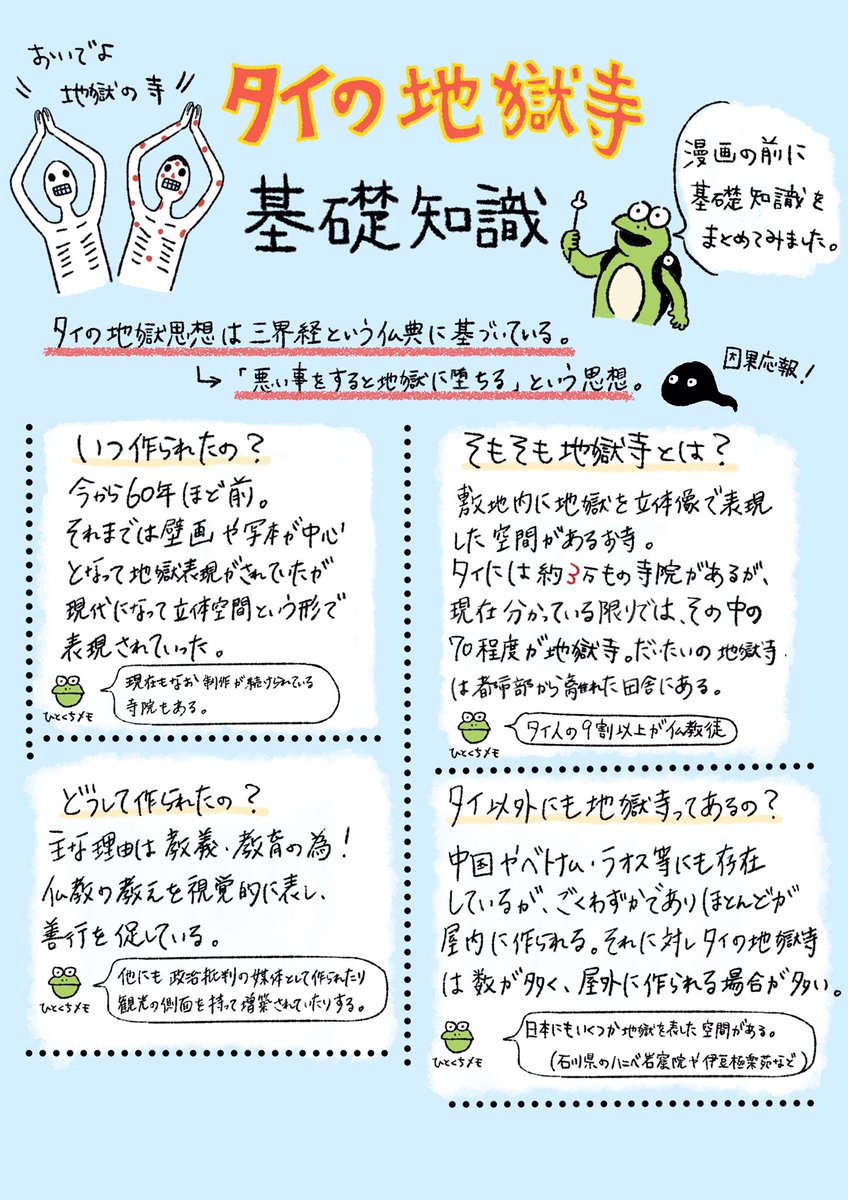 おいでよ
地獄の寺
タイの地獄寺
基礎知識
漫画の前に
基礎知識を
まとめてみました。
タイの地獄思想は三界経という仏典に基づいている。
↳「悪い事をすると地獄に堕ちる」という思想。
因果応報!
いつ作られたの?
今から60年ほど前。
それまでは壁画や写本が中心
となって地獄表現がされていたが
現代になって立体空間という形で
表現されていった。
現在もなお制作が続けられている
寺院もある。
ひとくちメモ
そもそも地獄寺とは?
敷地内に地獄を立体像で表現
した空間があるお寺。
タイには約3万もの寺院があるが、
現在分かっている限りでは、その中の
70程度が地獄寺。だいたいの地獄寺
は都市部から離れた田舎にある。
タイ人の9割以上が仏教徒
ひとくちメモ
どうして作られたの?
主な理由は教義・教育の為!
仏教の教えを視覚的に表し、
善行を促している。
他にも政治批判の媒体として作られたり
観光の側面を持って増築されていたりする。
ひとくちメモ
タイ以外にも地獄寺ってあるの?
中国やベトナム・ラオス等にも存在
しているが、ごくわずかでありほとんどが
屋内に作られる。それに対しタイの地獄寺
は数が多く、屋外に作られる場合が多い。
日本にもいくつか地獄を表した空間がある。
(石川県のハニベ岩窟院や伊豆極楽苑など)
ひとくちメモ